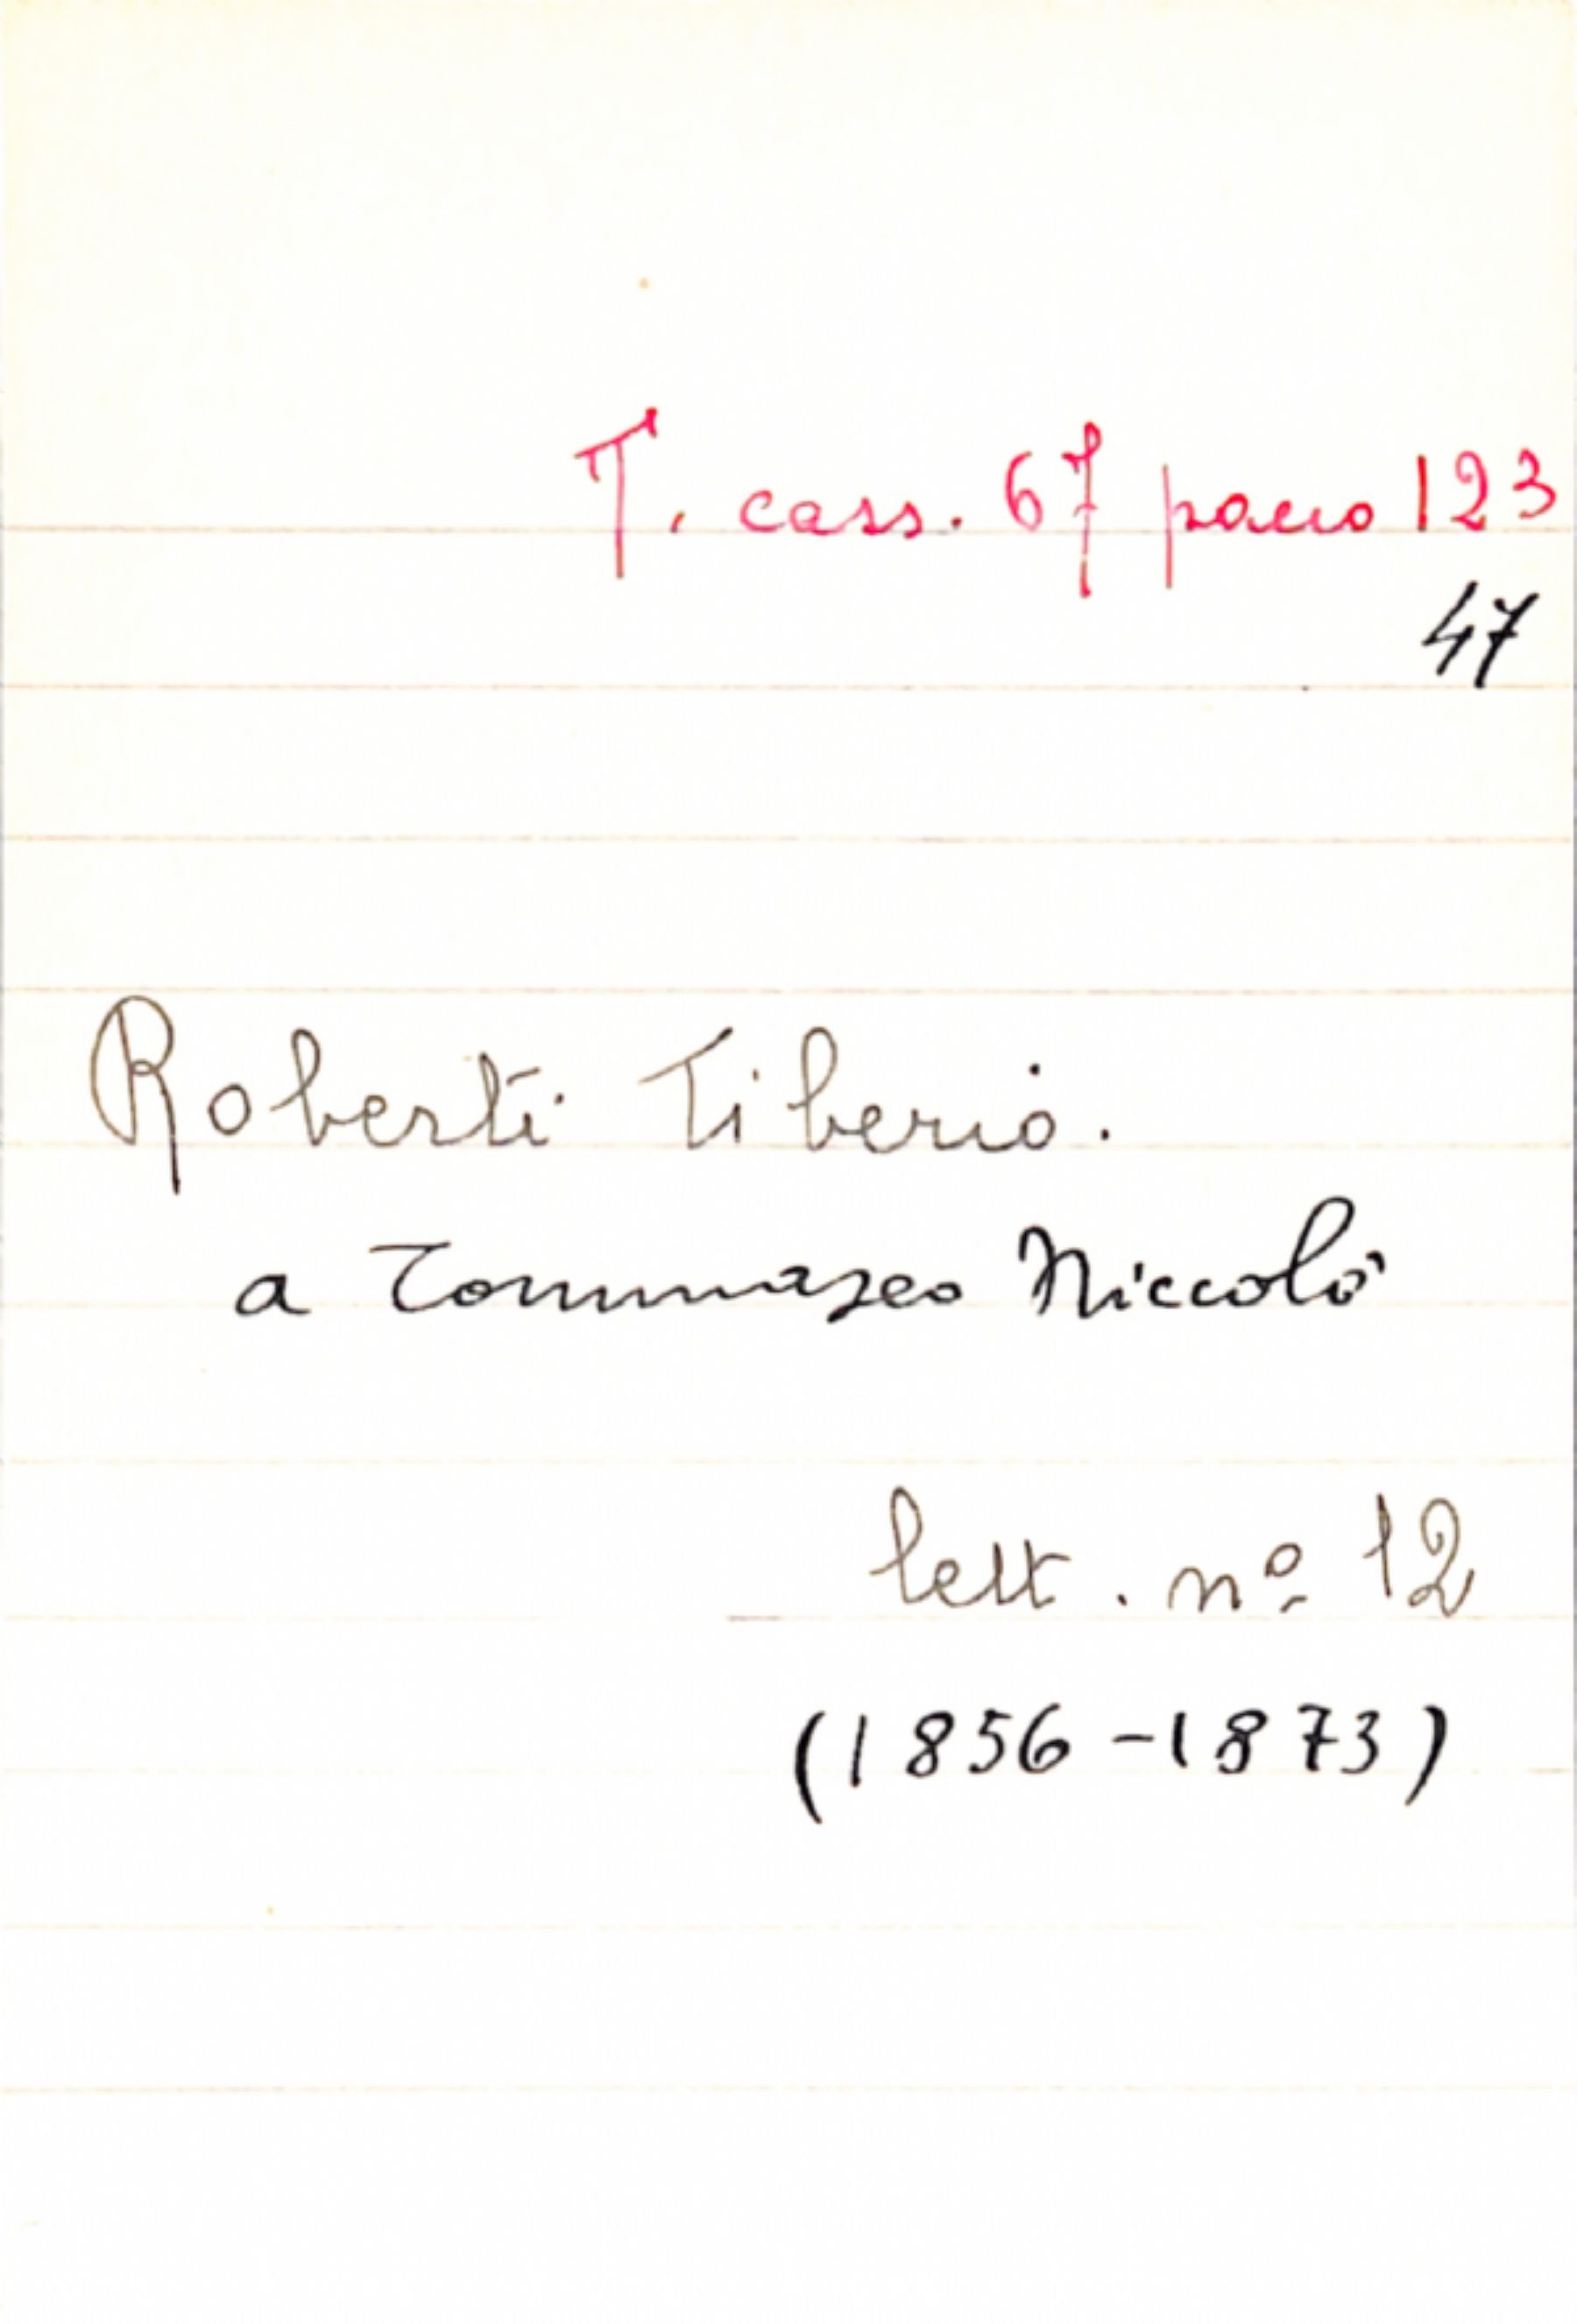 T. cass. 67 pacco 123
47
Roberti Tiberio.
a Tommaseo Niccolò
lett. nº 12
(1856-1873)